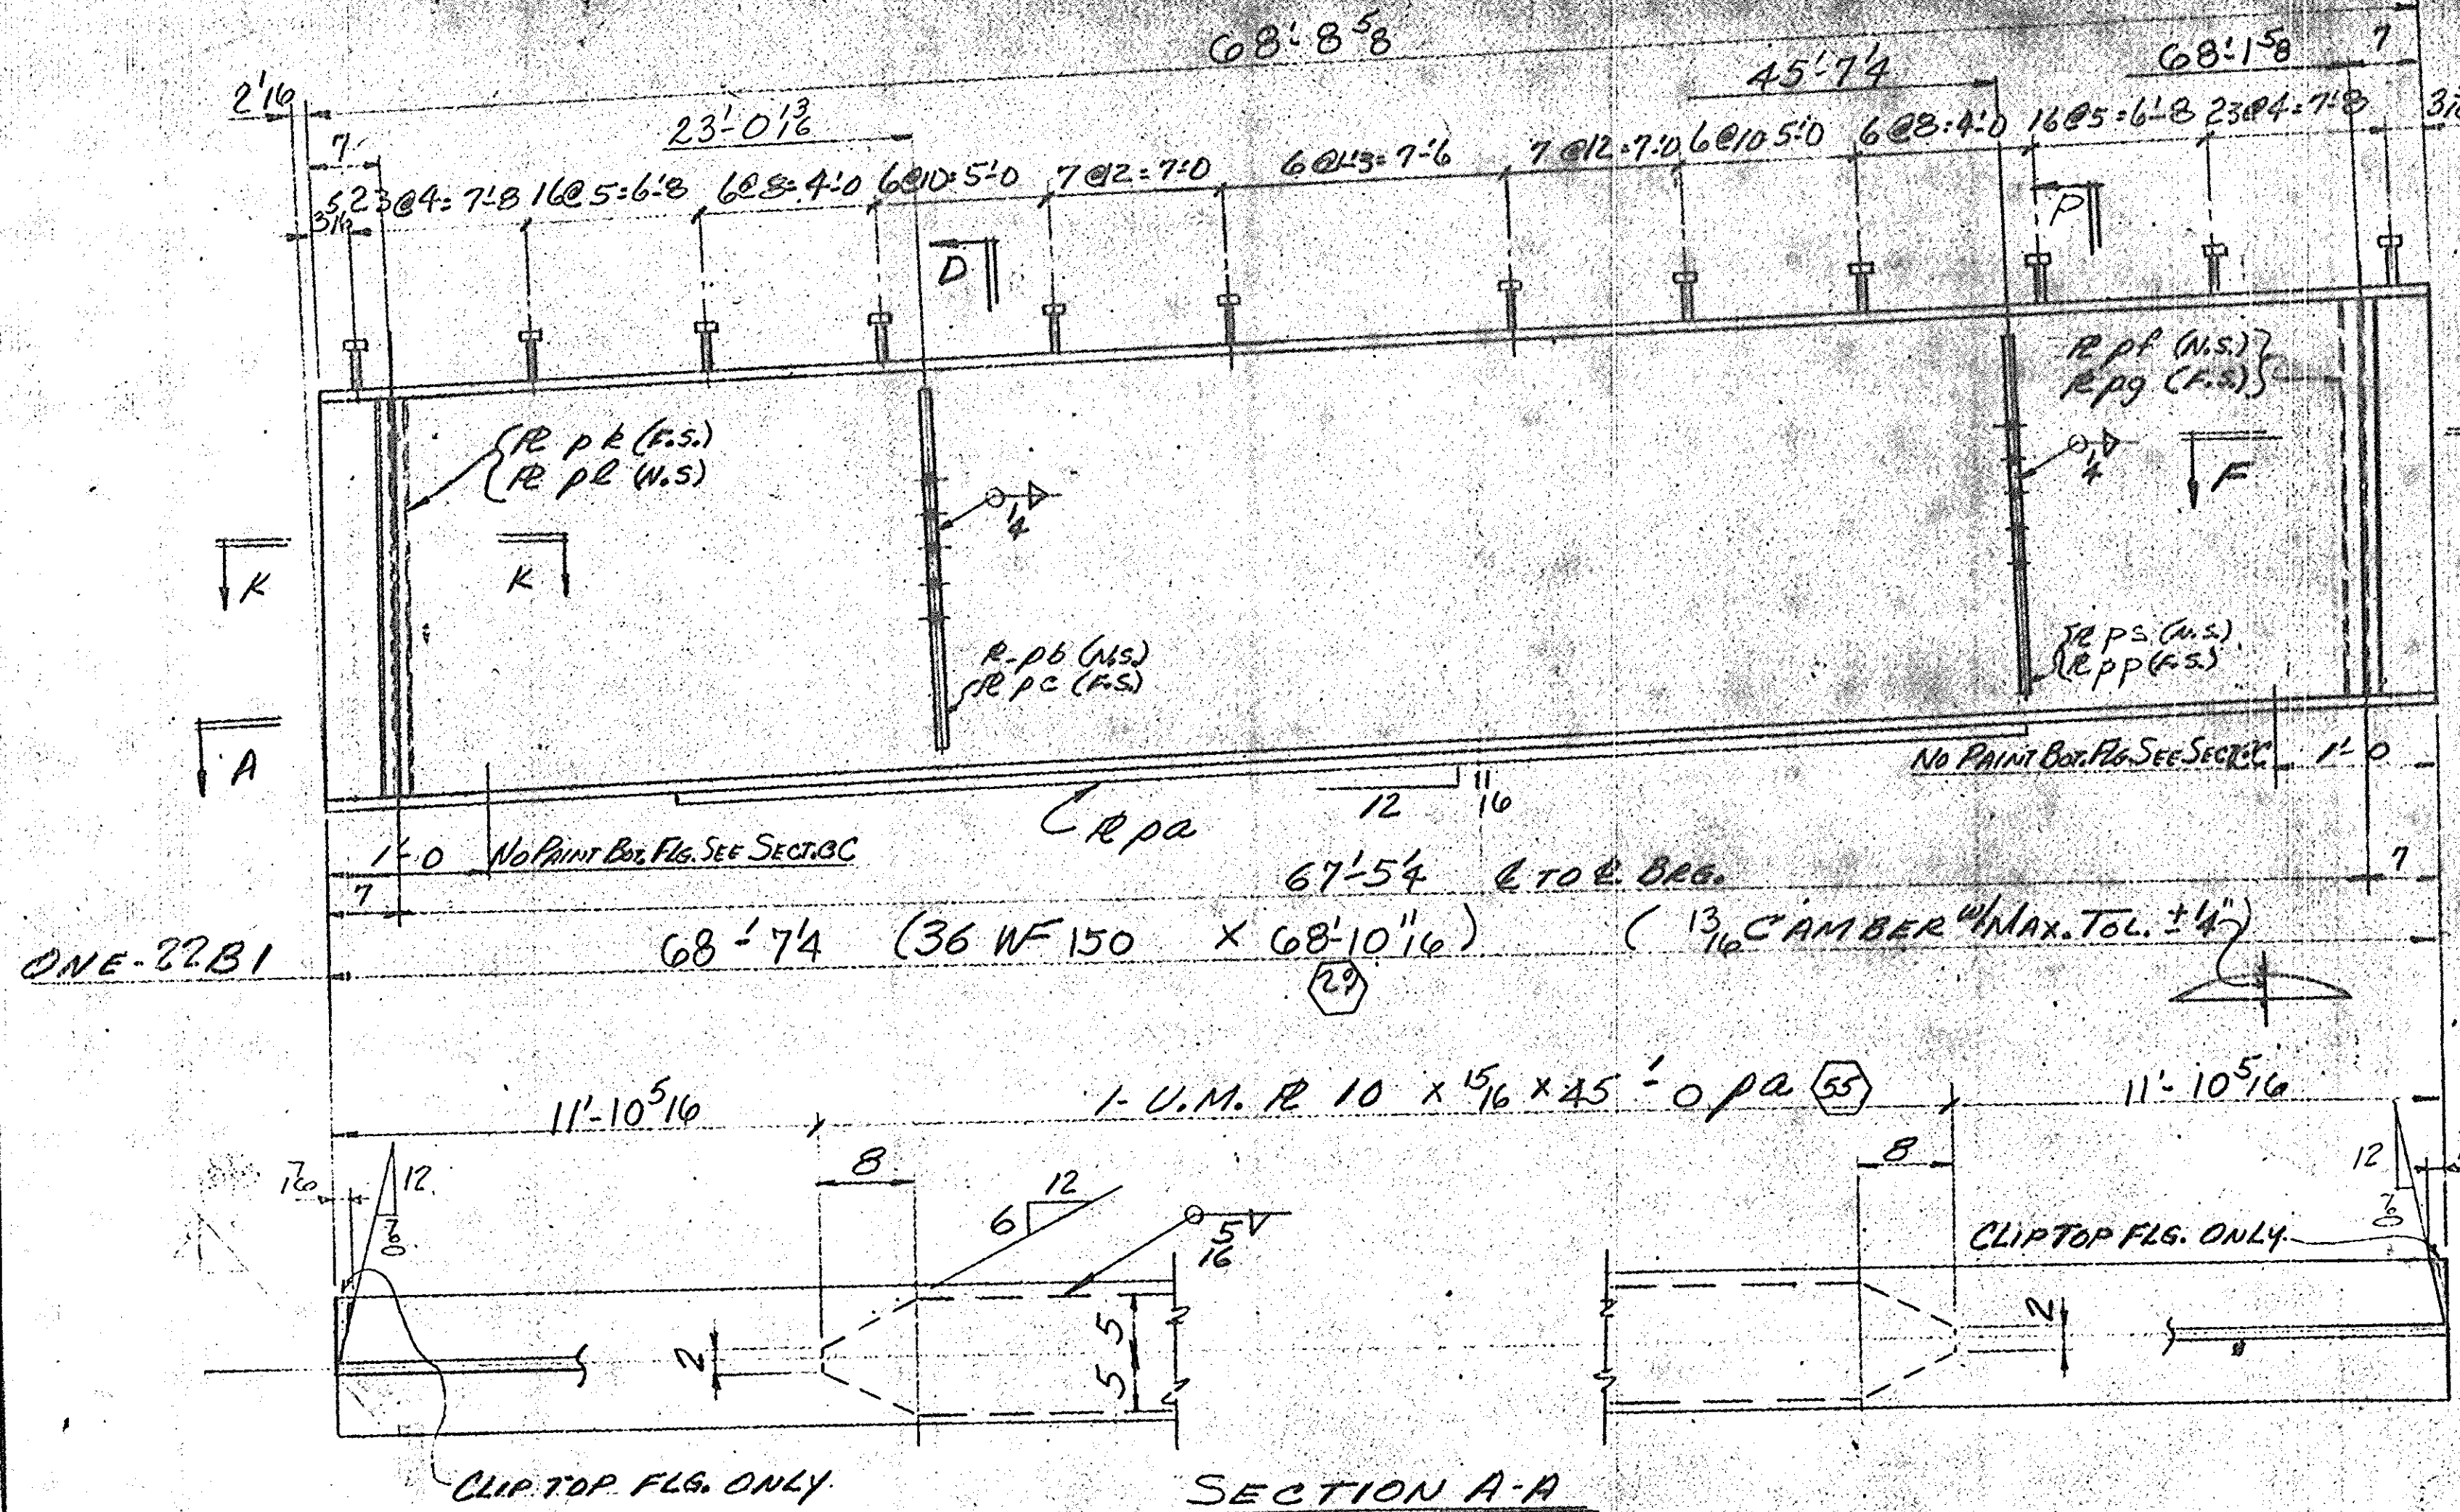 68'-8 5/8
2 1/16
7
23'-0 13/16
45'-7 1/4
68'-1 5/8
7
5 3/16
23@4=7'-8
16@5=6'-8
6@8=4'-0
6@10=5'-0
7@12=7'-0
6@1-3=7'-6
7@12=7'-0
6@10 5'-0
6@8=4'-0
16@5=6'-8
23@4=7'-8
D
P
PL pk (F.S.)
PL pl (N.S)
1/4
PL pf (N.S.)
PL pg (F.S.)
1/4
F
K
K
A
PL pb (N.S.)
PL pc (F.S.)
PL ps (N.S.)
PL pp (F.S.)
NO PAINT BOT. FLG. SEE SECT. C
1'-0
12
11/16
PL pa
1'-0
NO PAINT BOT. FLG. SEE SECT. C
7
67'-5 1/4 ℄ TO ℄ BRG.
7
ONE-22B1
68'-7 1/4 (36 WF 150 x 68'-10 11/16)
(13/16 CAMBER W/MAX. TOL. ± 1/4")
29
11'-10 5/16
1- U.M. PL 10 x 15/16 x 45'-0 pa 55
11'-10 5/16
7/16
12
7/8
8
12
6
5/16
8
12
7/8
CLIP TOP FLG. ONLY.
2
5
5
2
CLIP TOP FLG. ONLY.
SECTION A-A